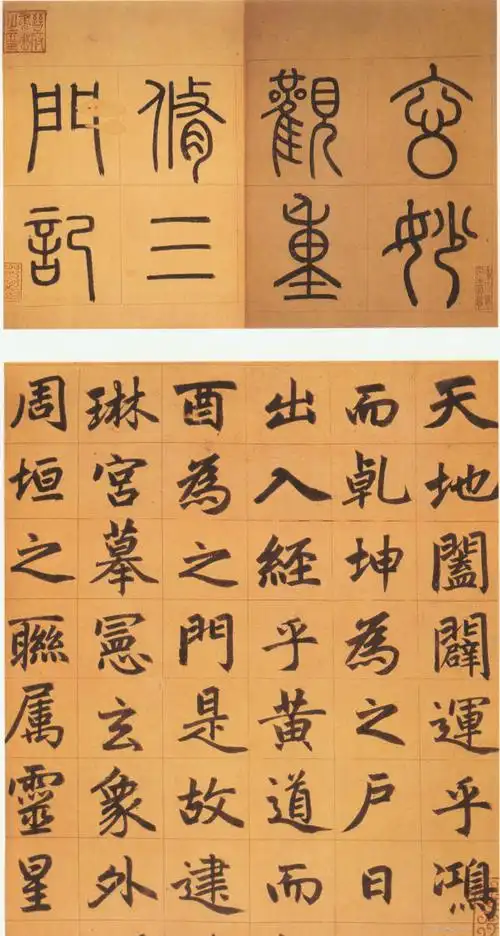 玄妙
觀重
脩三
門記
天地闔闢運乎鴻
而乹坤為之户日
出入經乎黃道而
酉為之門是故建
琳宮摹憲玄象外
周垣之聯属靈星